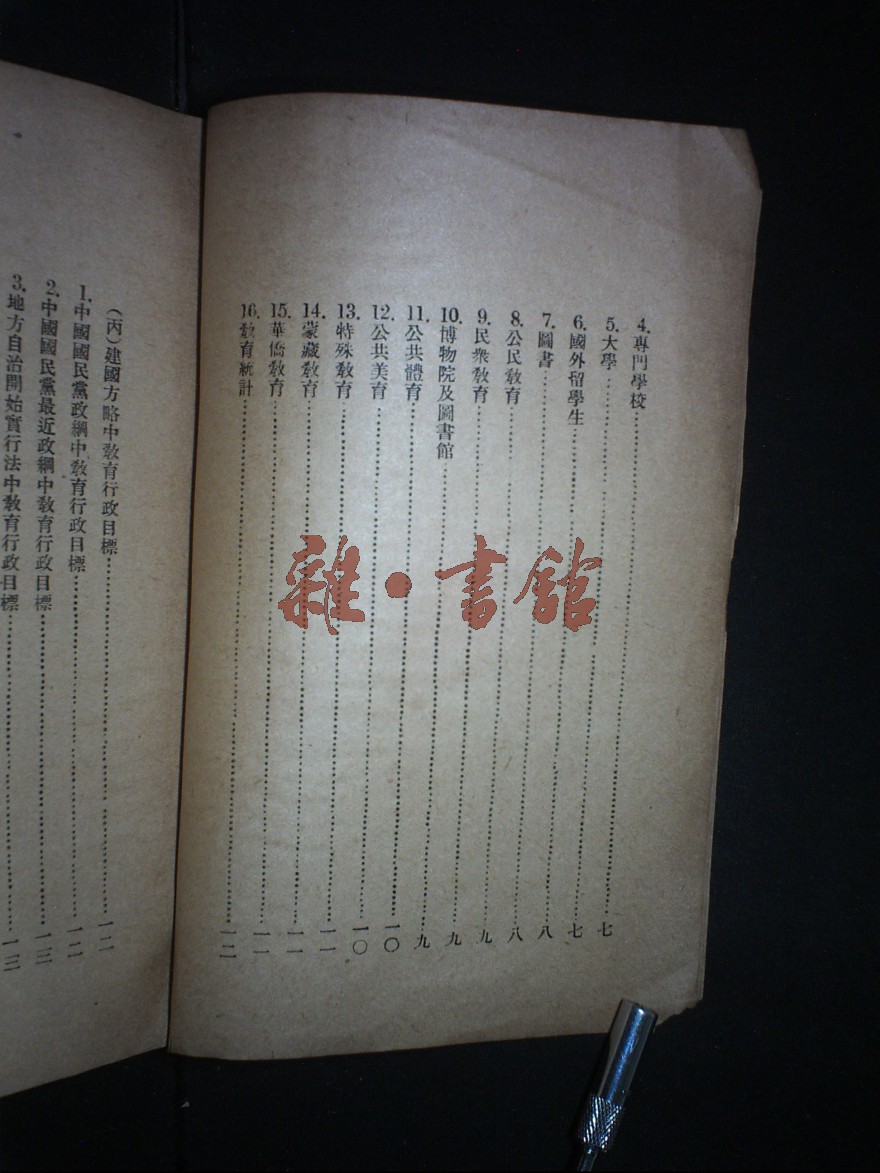 4.專門學校……七
5.大學……七
6.國外留學生……七
7.圖書……八
8.公民教育……八
9.民衆教育……九
10.博物院及圖書館……九
11.公共體育……九
12.公共美育……一〇
13.特殊教育……一〇
14.蒙藏教育……一一
15.華僑教育……一一
16.教育統計……一二
(丙)建國方略中教育行政目標……一二
1.中國國民黨政綱中教育行政目標……一二
2.中國國民黨最近政綱中教育行政目標……一三
3.地方自治開始實行法中教育行政目標……一三
雜·書館